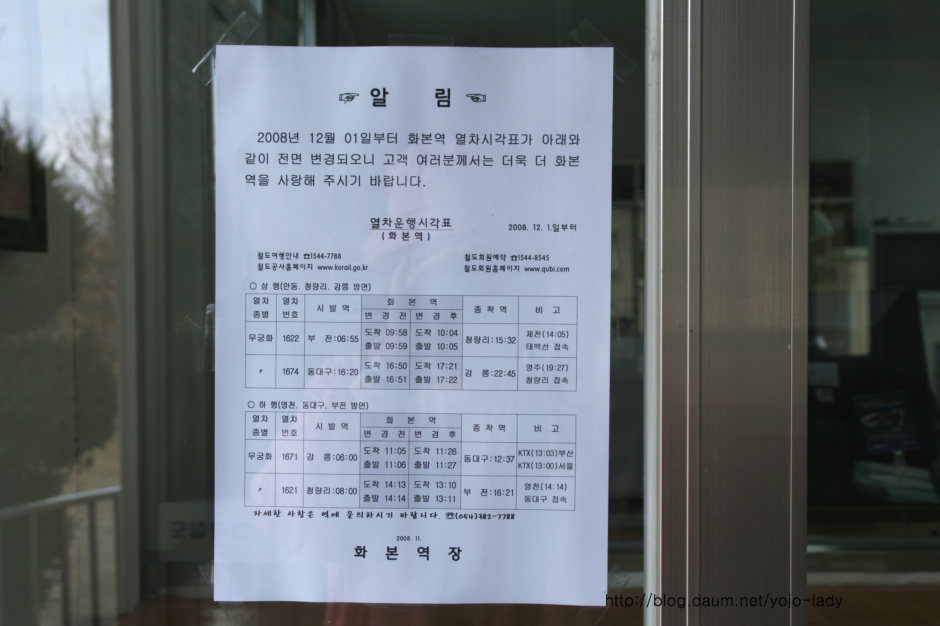 ☞ 알 림 ☜
2008년 12월 01일부터 화본역 열차시각표가 아래와
같이 전면 변경되오니 고객 여러분께서는 더욱 더 화본
역을 사랑해 주시기 바랍니다.
열차운행시각표
(화본역)
2008. 12. 1.일부터
철도여행안내 ☎1544-7788
철도회원예약 ☎1544-8545
철도공사홈페이지 www.korail.go.kr
철도회원홈페이지 www.qubi.com
○ 상 행(안동, 청량리, 강릉 방면)
열차종별 열차번호 시 발 역 화 본 역 종 착 역 비 고
변 경 전 변 경 후
무궁화 1622 부 전:06:55 도착 09:58 도착 10:04 청량리:15:32 제천(14:05)
출발 09:59 출발 10:05 태백선 접속
〃 1674 동대구:16:20 도착 16:50 도착 17:21 강 릉:22:45 영주(19:27)
출발 16:51 출발 17:22 청량리 접속
○ 하 행(영천, 동대구, 부전 방면)
열차종별 열차번호 시 발 역 화 본 역 종 착 역 비 고
변 경 전 변 경 후
무궁화 1671 강 릉:06:00 도착 11:05 도착 11:26 동대구:12:37 KTX(13:03)부산
출발 11:06 출발 11:27 KTX(13:00)서울
〃 1621 청량리:08:00 도착 14:13 도착 13:10 부 전:16:21 영천(14:14)
출발 14:14 출발 13:11 동대구 접속
자세한 사항은 역에 문의하시기 바랍니다. ☎(054)382-7788
2008. 11.
화 본 역 장
http://blog.daum.net/yojo-lady